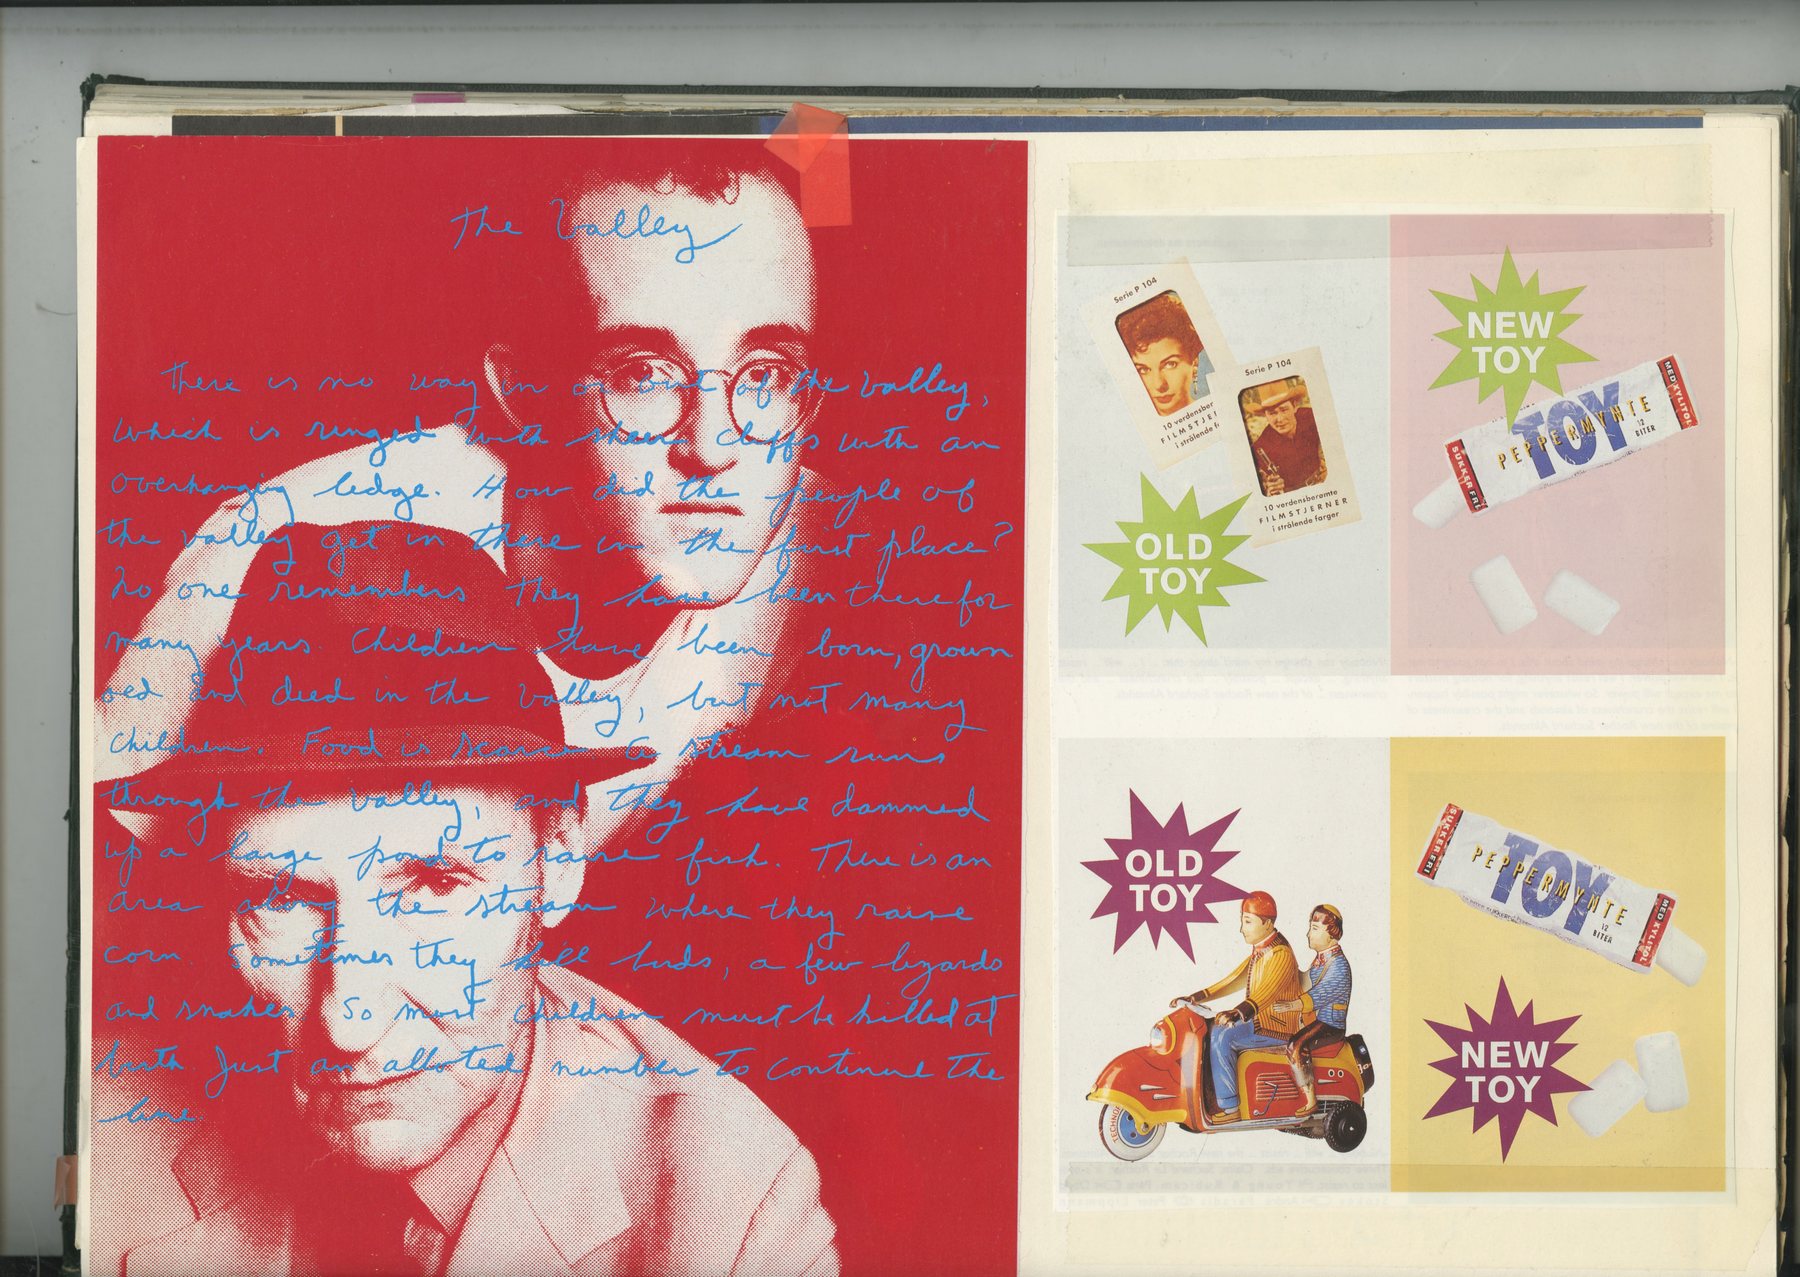 The Valley
There is no way in or out of the valley,
which is ringed with sheer cliffs with an
overhanging ledge. How did the people of
the valley get in there in the first place?
No one remembers they have been there for
many years. Children have been born, grown
old and died in the valley, but not many
children. Food is scarce A stream runs
through the valley, and they have dammed
up a large pond to raise fish. There is an
area along the stream where they raise
corn. Sometimes they kill birds, a few lizards
and snakes So most children must be killed at
birth. Just an alloted number to continue the
line
Serie P 104
10 verdensber
FILMSTJE
i strålende f
Serie P 104
10 verdensberømte
FILMSTJERNER
i strålende farger
OLD
TOY
NEW
TOY
SUKKERFRI
TOY
PEPPERMYNTE
12
BITER
MED XYLITOL
OLD
TOY
TECHNO
SUKKERFRI
TOY
PEPPERMYNTE
12
BITER
MED XYLITOL
NEW
TOY